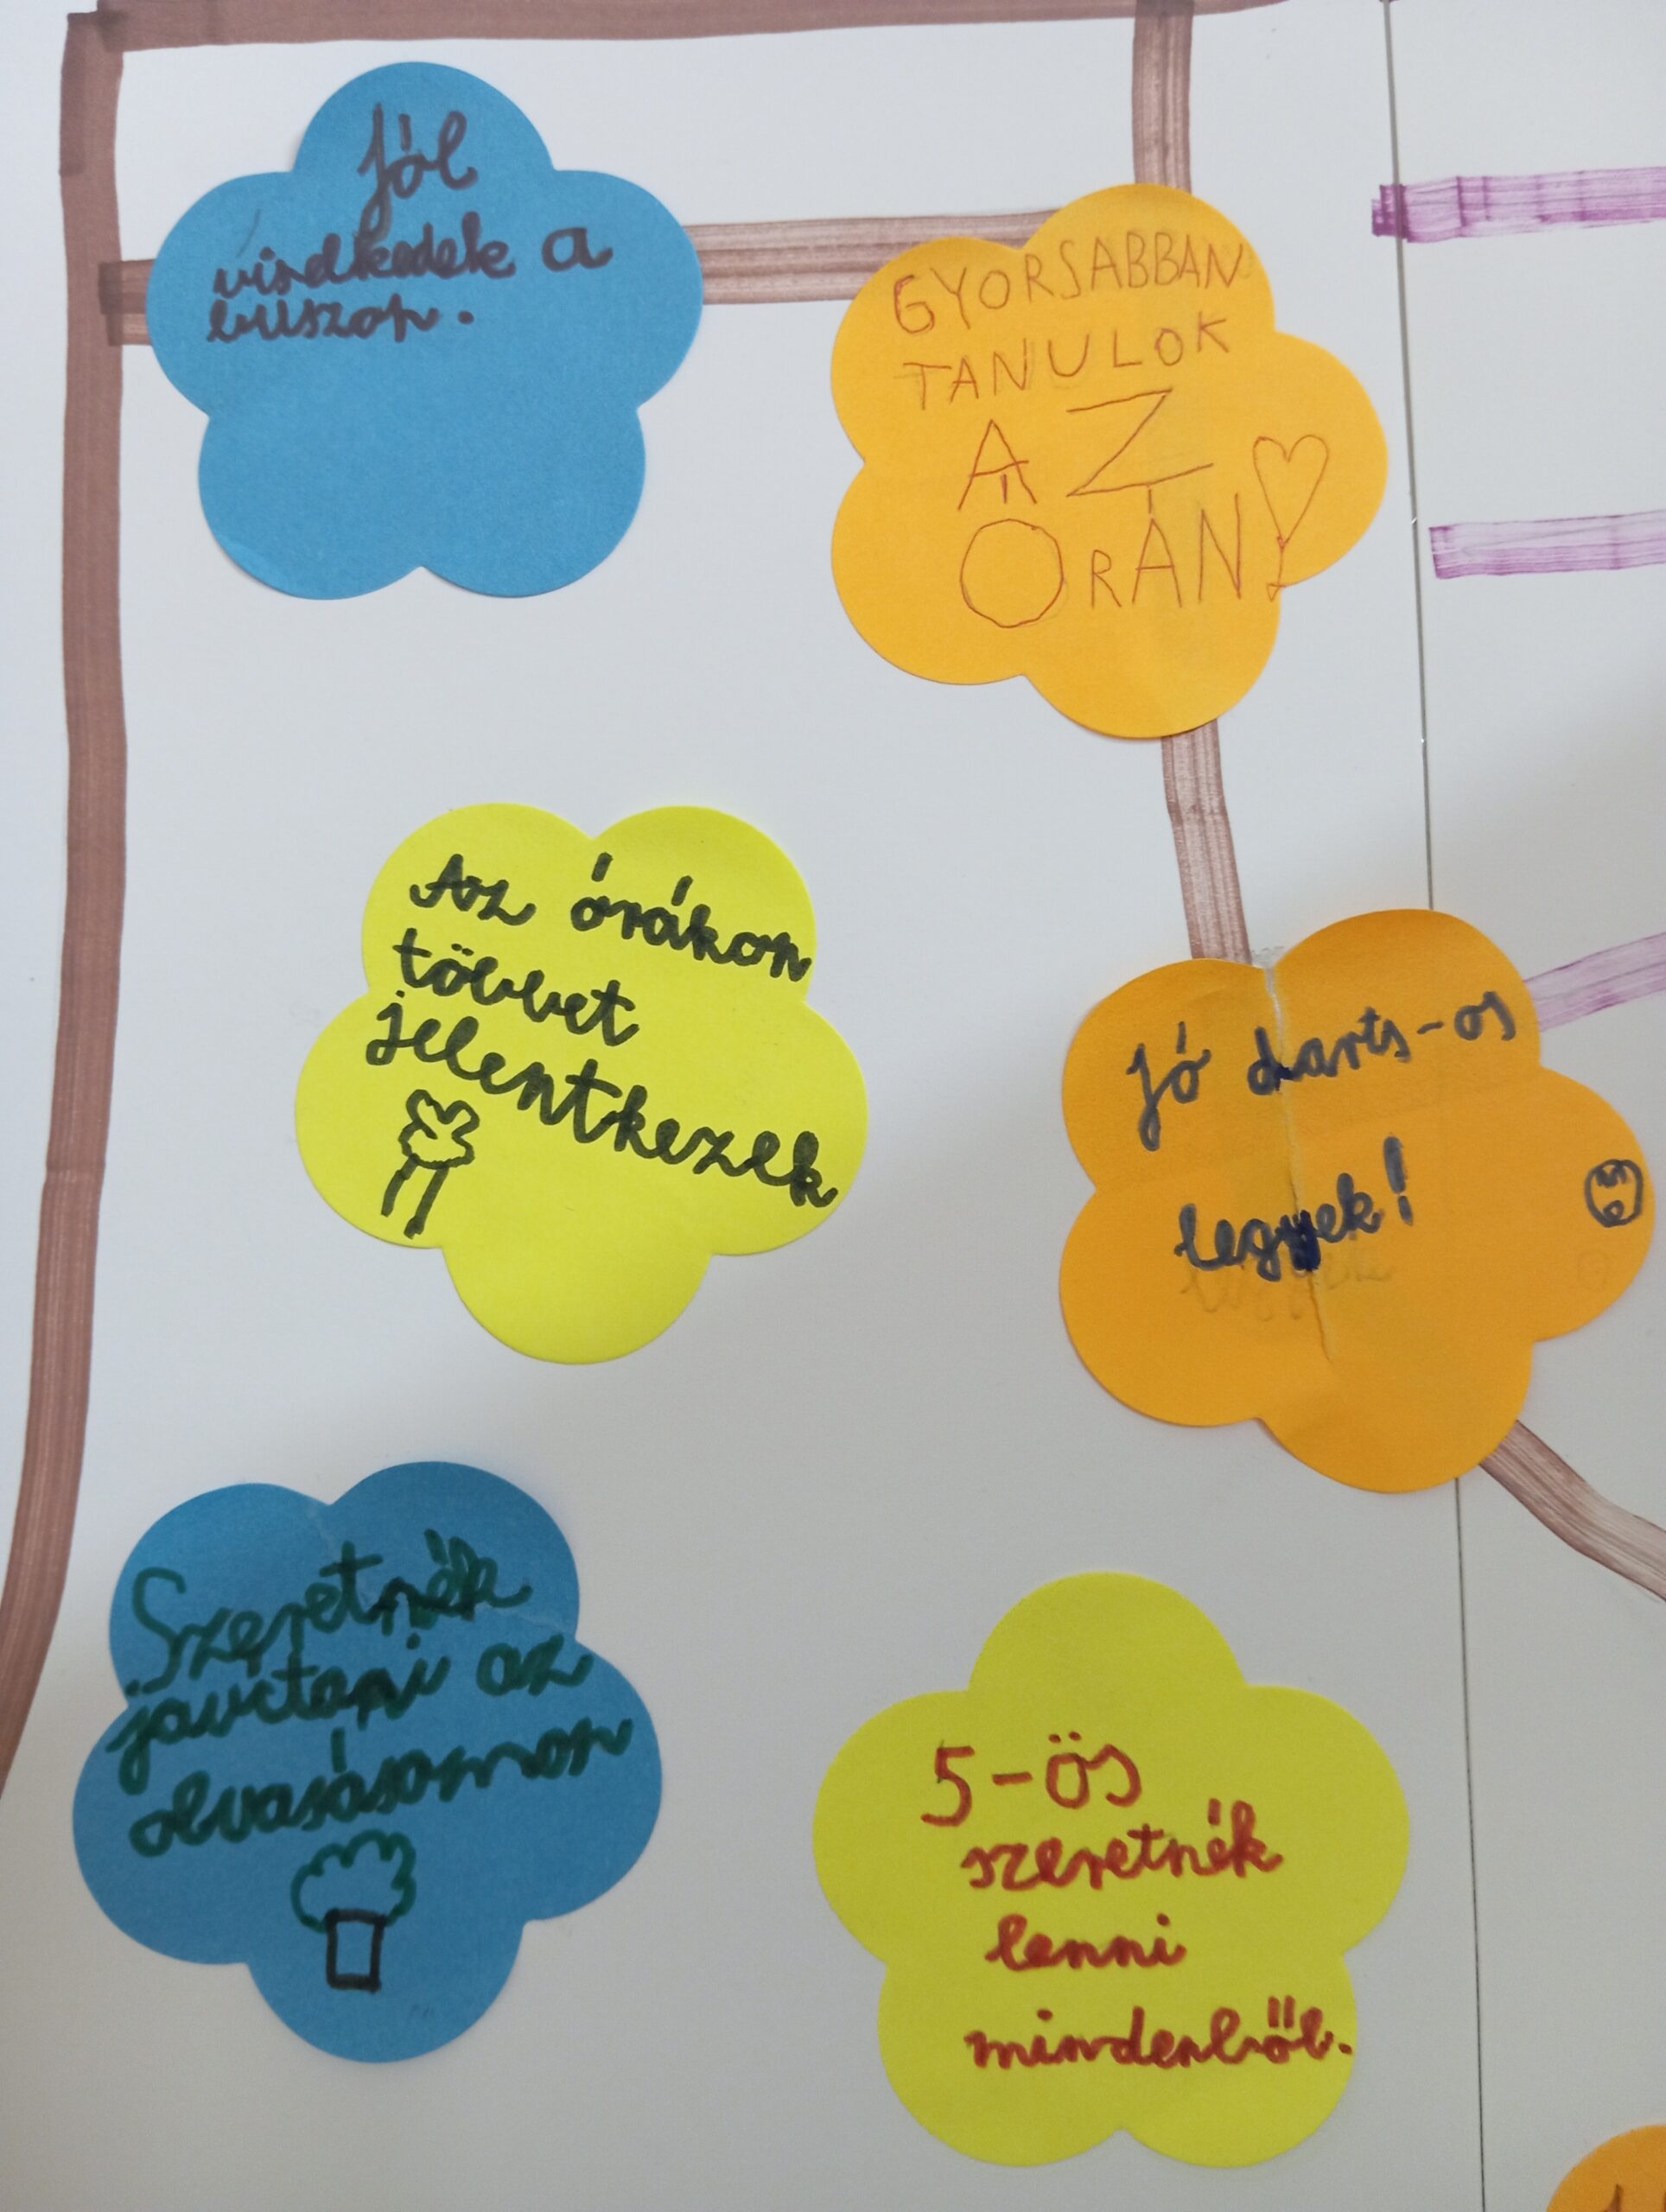 Jól
viselkedek a
buszon.
GYORSABBAN
TANULOK
AZ
ÓRÁN!
Az órákon
többet
jelentkezek
Jó darts-os
legyek!
Szeretnék
javítani az
olvasásomon
5-ös
szeretnék
lenni
mindenből.